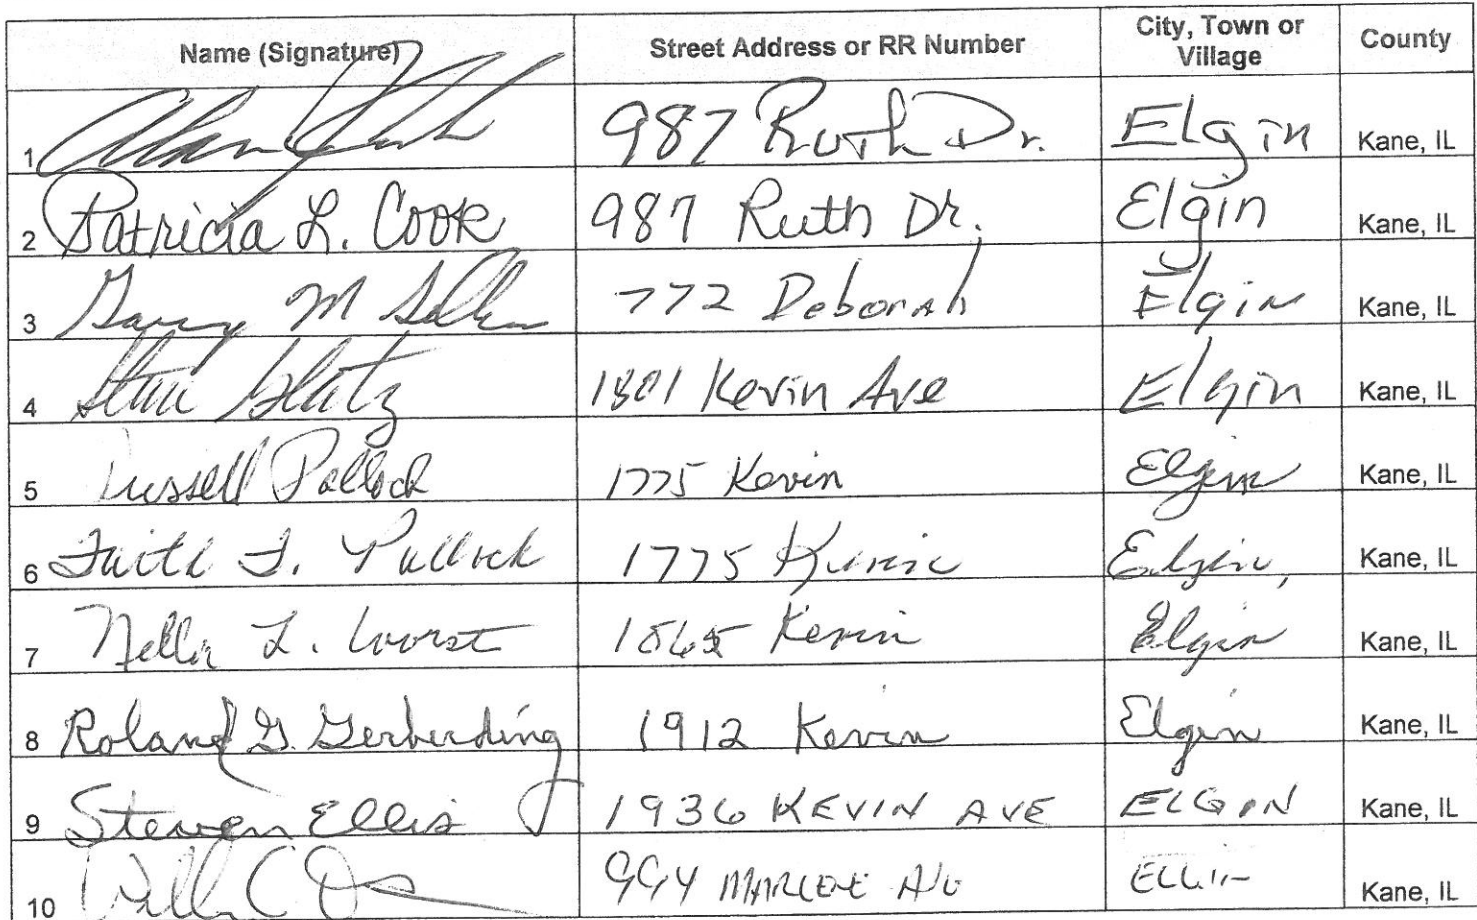 Name (Signature) Street Address or RR Number City, Town or Village County
1 987 Ruth Dr. Elgin Kane, IL
2 Patricia L. Cook 987 Ruth Dr. Elgin Kane, IL
3 Garry M 772 Deborah Elgin Kane, IL
4 Glatz 1801 Kevin Ave Elgin Kane, IL
5 Russell Pollock 1775 Kevin Elgin Kane, IL
6 Faith J. Pollock 1775 Kevin Elgin, Kane, IL
7 L. Worst 1865 Kevin Elgin Kane, IL
8 Roland G. Gerberding 1912 Kevin Elgin Kane, IL
9 Steven Ellis 1936 KEVIN AVE ELGIN Kane, IL
10 994 Kane, IL